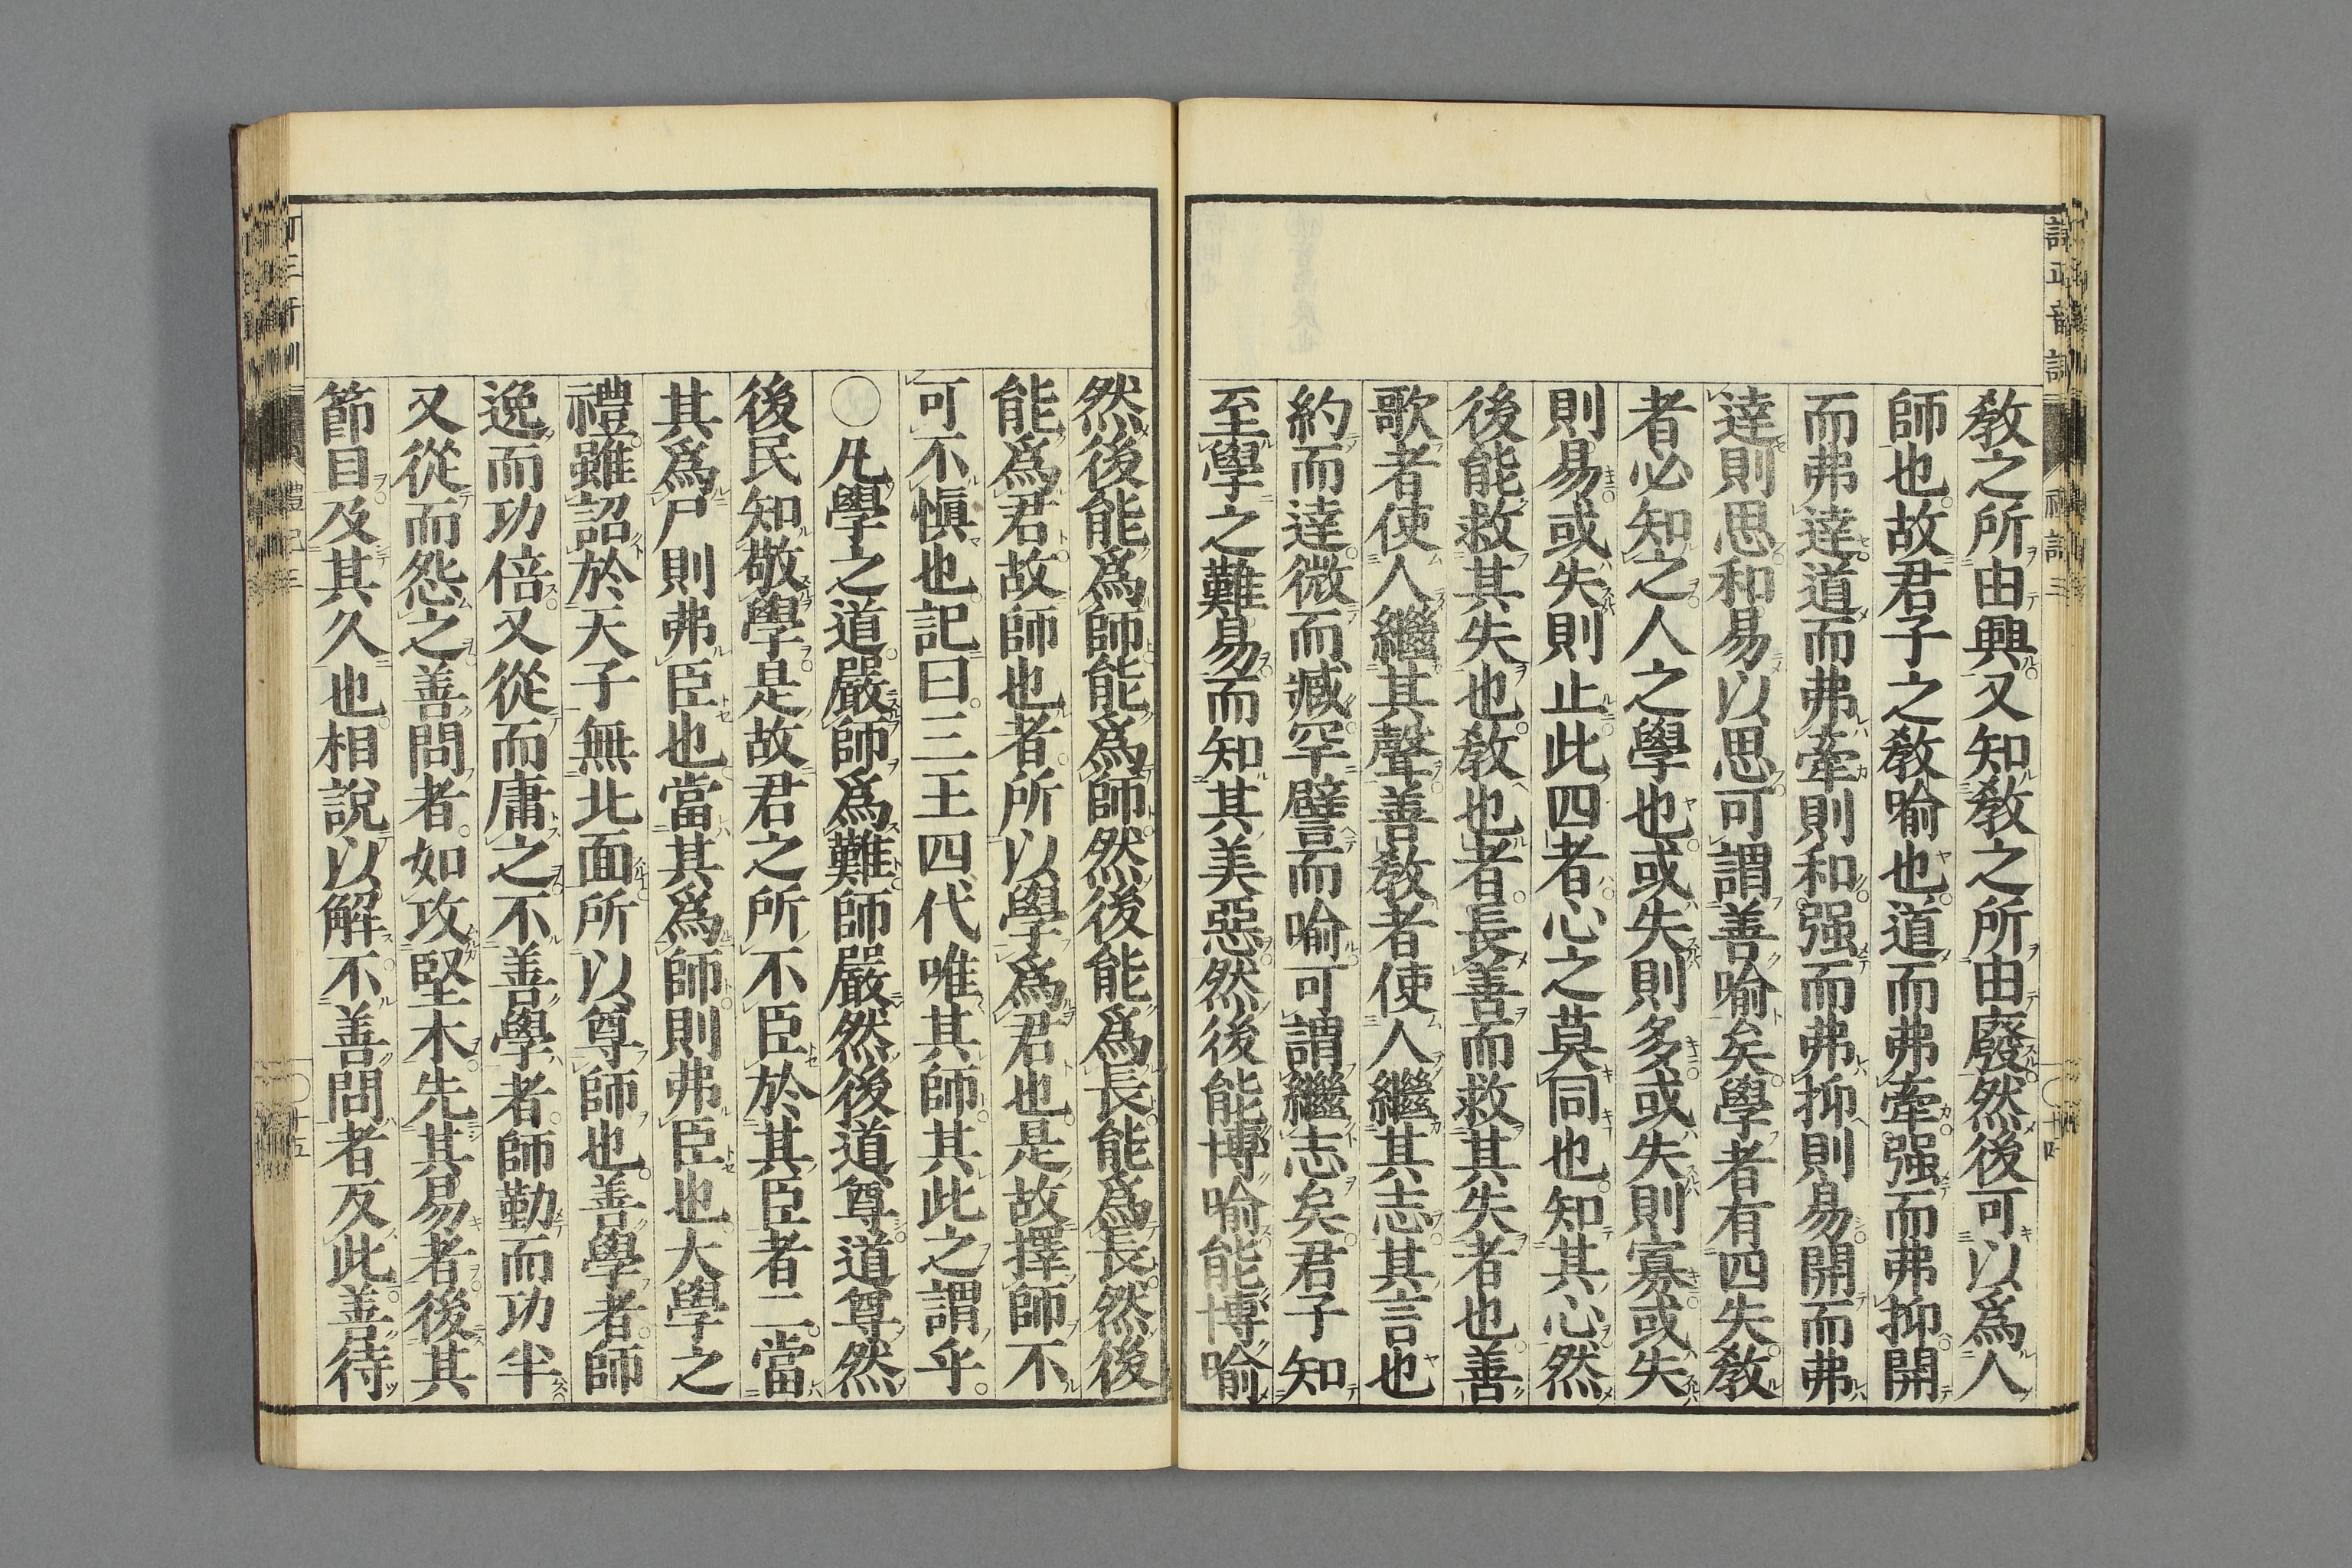 教之所由興又知教之所由廢然後可以爲人
師也故君子之教喻也道而弗牽强而弗抑開
而弗達道而弗牽則和强而弗抑則易開而弗
達則思和易以思可謂善喻矣學者有四失教
者必知之人之學也或失則多或失則寡或失
則易或失則止此四者心之莫同也知其心然
後能救其失也教也者長善而救其失者也善
歌者使人繼其聲善教者使人繼其志其言也
約而達微而臧罕譬而喻可謂繼志矣君子知
至學之難易而知其美惡然後能博喻能博喻
然後能爲師能爲師然後能爲長能爲長然後
能爲君故師也者所以學爲君也是故擇師不
可不愼也記曰三王四代唯其師其此之謂乎
○凡學之道嚴師爲難師嚴然後道尊道尊然
後民知敬學是故君之所不臣於其臣者二當
其爲尸則弗臣也當其爲師則弗臣也大學之
禮雖詔於天子無北面所以尊師也善學者師
逸而功倍又從而庸之不善學者師勤而功半
又從而怨之善問者如攻堅木先其易者後其
節目及其久也相說以解不善問者反此善待